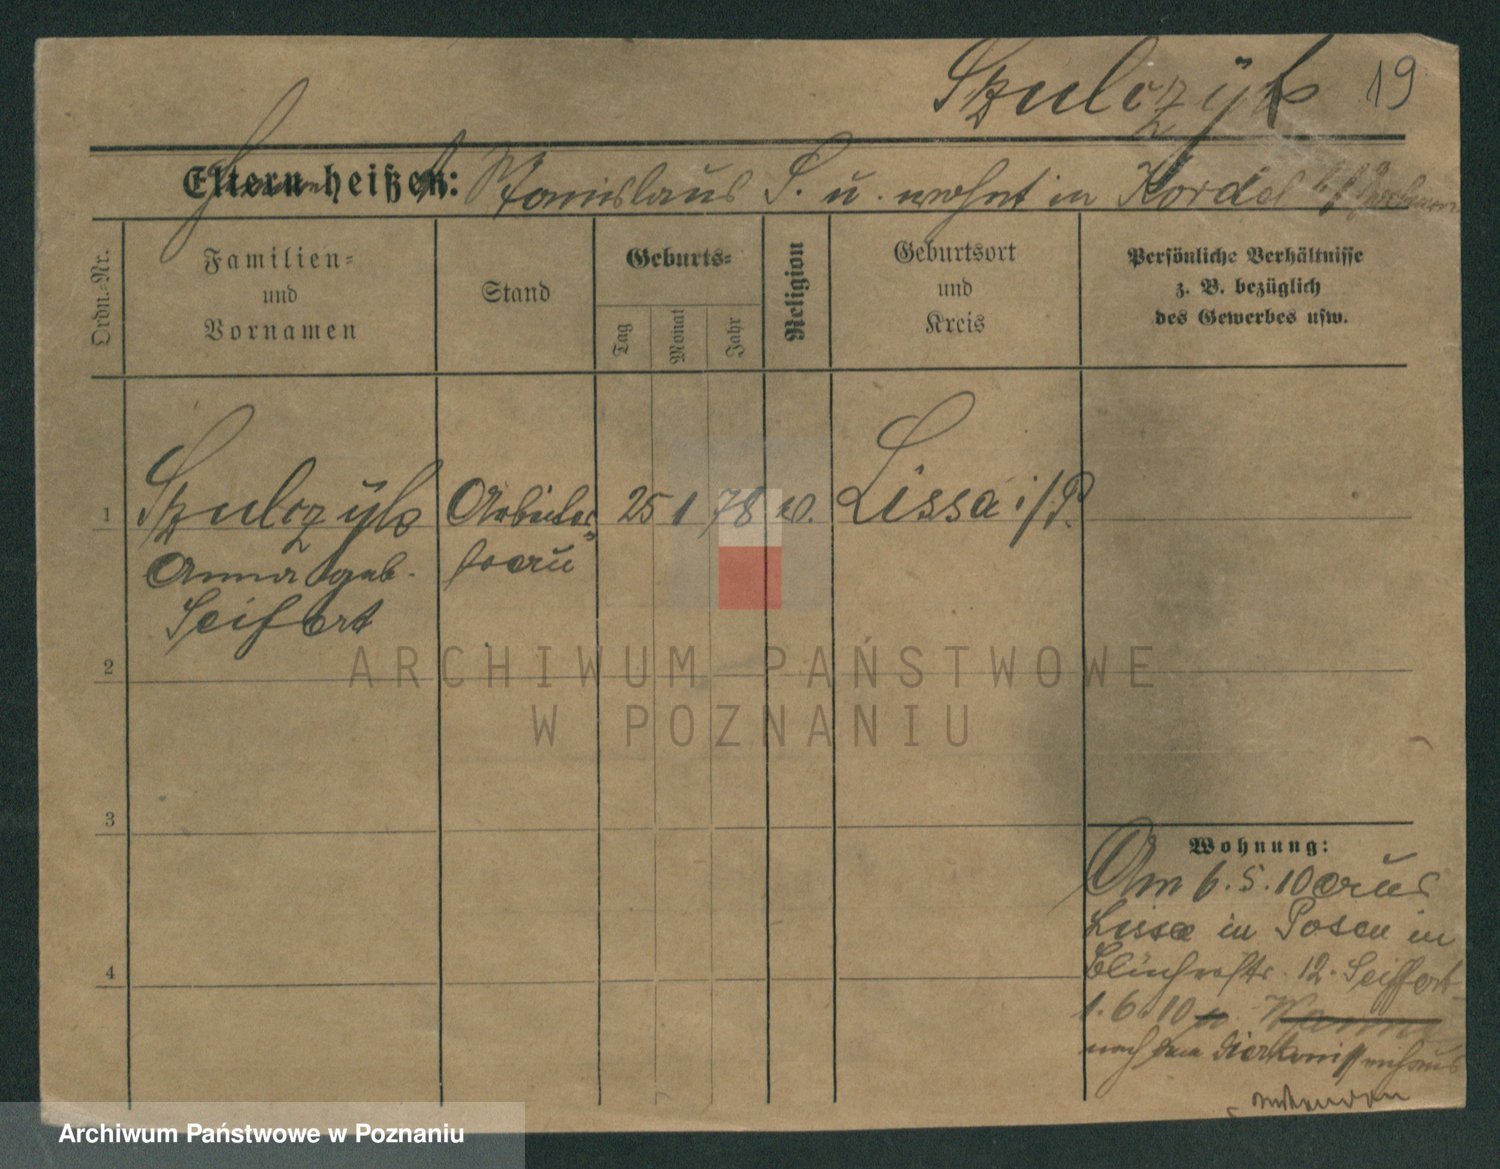 Szulczyk 19
Eltern heißen: Stanislaus S. u. wohnt in Kordel
Ordn.-Nr.
Familien-
und
Vornamen
Stand
Geburts-
Tag
Monat
Jahr
Religion
Geburtsort
und
Kreis
Persönliche Verhältnisse
z. B. bezüglich
des Gewerbes usw.
1 Szulczyk Arbeiter 25 1 78 Lissa i/P.
frau
Anna geb.
Seifert
2
3
4
Wohnung:
Am 6.5.10 aus
Lissa in Posen in
Blücherstr. 12. Seiffert
1.6.10
nach dem Diakonissenhaus
ARCHIWUM PAŃSTWOWE
W POZNANIU
Archiwum Państwowe w Poznaniu